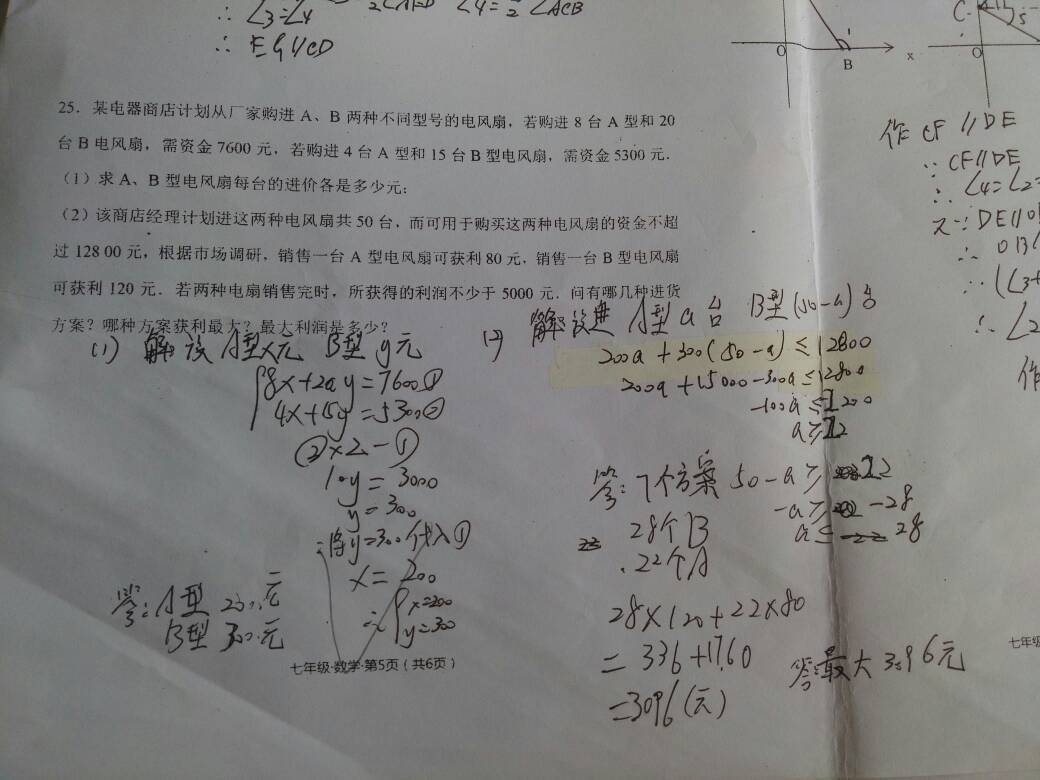 ∴ ∠3=∠4
∠4=½ ∠ACB
∴ EG//CD
25．某电器商店计划从厂家购进 A、B 两种不同型号的电风扇，若购进 8 台 A 型和 20
台 B 电风扇，需资金 7600 元，若购进 4 台 A 型和 15 台 B 型电风扇，需资金 5300 元．
（1）求 A、B 型电风扇每台的进价各是多少元；
（2）该商店经理计划进这两种电风扇共 50 台，而可用于购买这两种电风扇的资金不超
过 128 00 元，根据市场调研，销售一台 A 型电风扇可获利 80 元，销售一台 B 型电风扇
可获利 120 元．若两种电扇销售完时，所获得的利润不少于 5000 元．问有哪几种进货
方案？哪种方案获利最大？最大利润是多少？
(1) 解设A型x元 B型y元
8x+20y=7600①
4x+15y=5300②
②×2-①
10y=3000
y=300
将y=300代入①
x=200
∴ x=200
y=300
答:A型 200元
B型 300元
七年级·数学·第5页（共6页）
(2) 解:设进A型a台 B型(50-a)台
200a+300(50-a)≤12800
200a+15000-300a≤12800
-100a≤
a≥
答:7个方案 50-a≥22
-a≥ -28
a≤ 28
28个B
22个A
28×120+22×80
=336+1760
=3096(元)
答:最大3096元
O
B
x
C
O
作 CF//DE
∵ CF//DE
∴ ∠4=∠2=
又∵ DE//
∴
∴ (∠3+
∴ ∠2
作
七年级